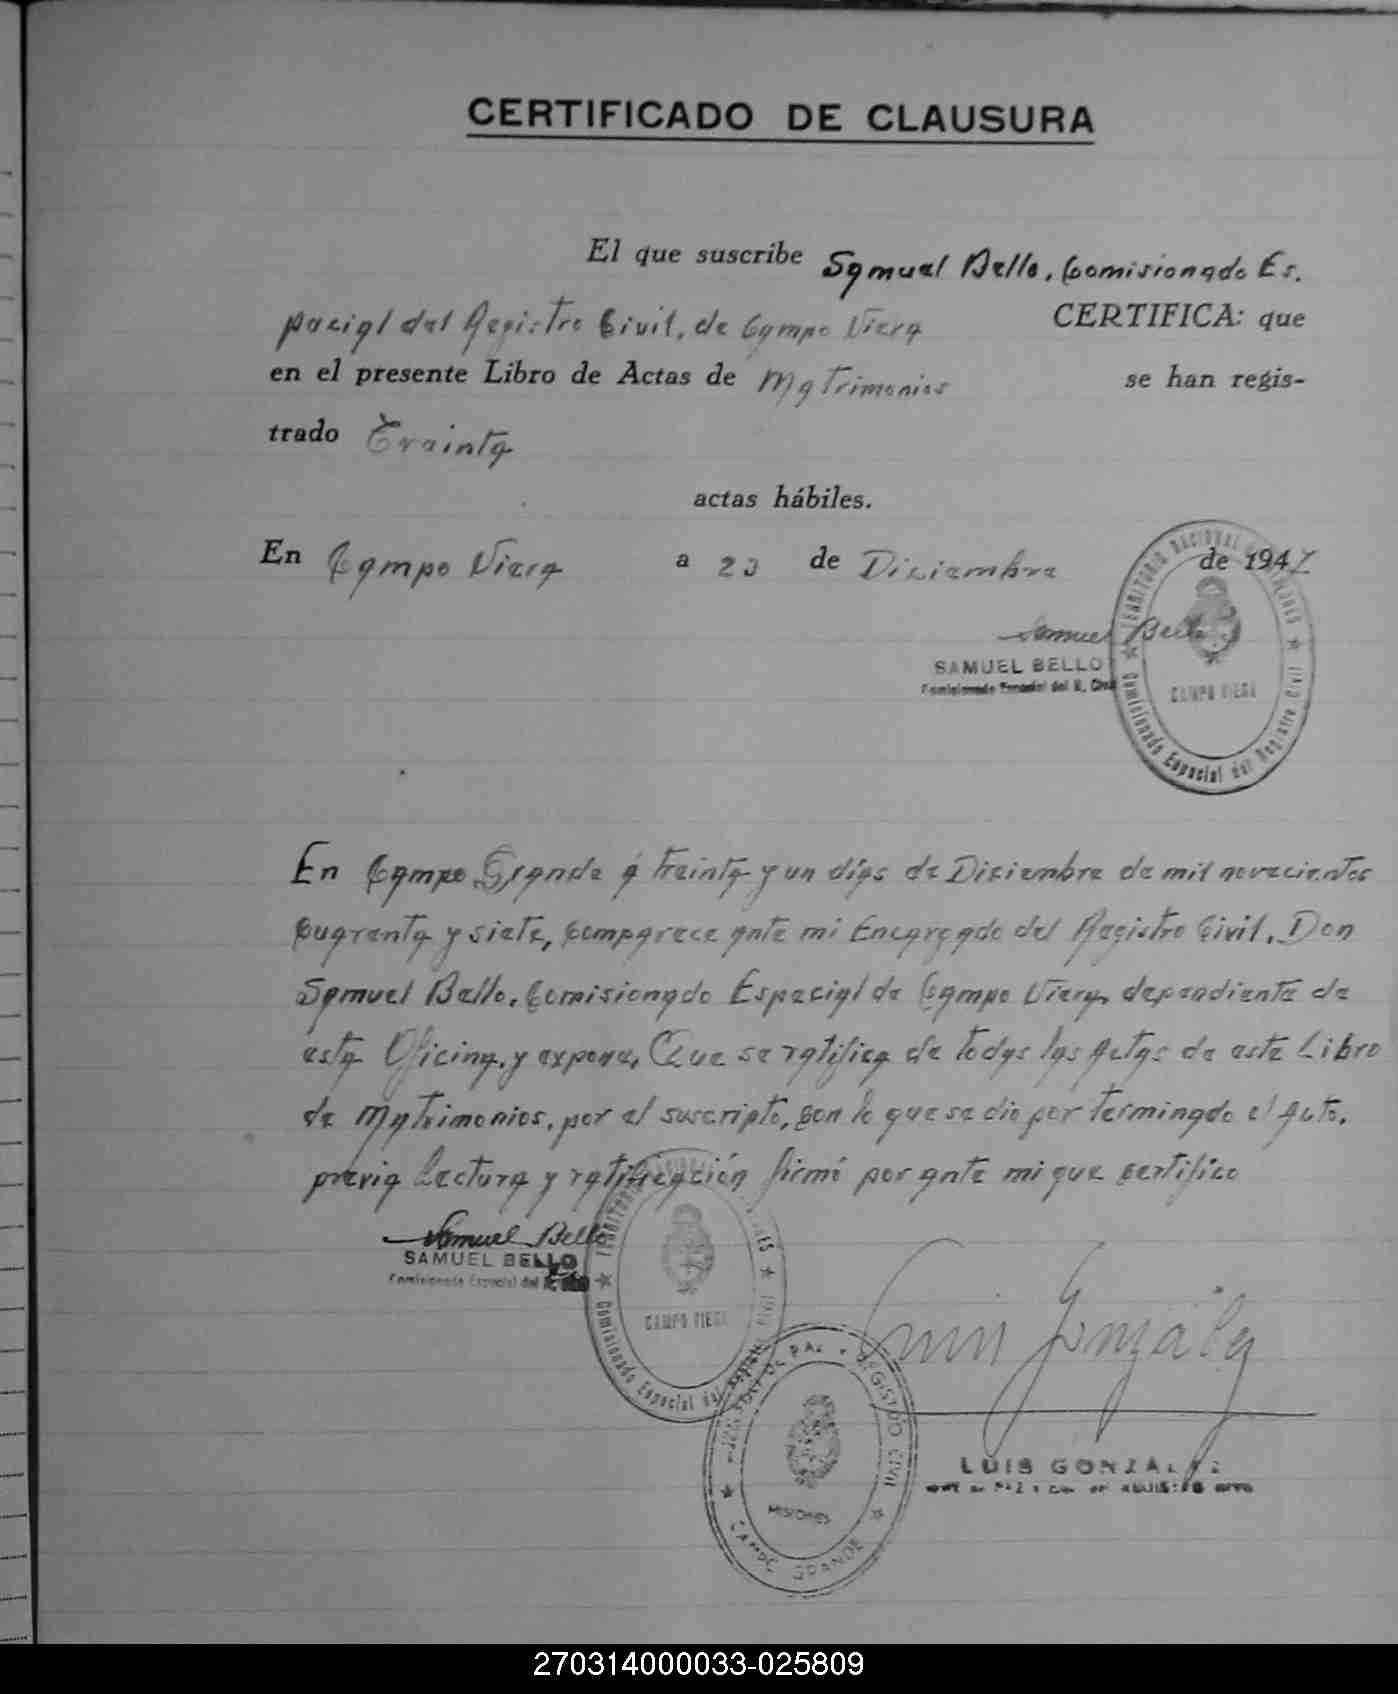 CERTIFICADO DE CLAUSURA
El que suscribe Samuel Bello, Comisionado Es.
pecial del Registro Civil, de Campo Viera CERTIFICA: que
en el presente Libro de Actas de Matrimonios se han regis-
trado Treinta
actas hábiles.
En Campo Viera a 23 de Diciembre de 1947
Samuel Bello
SAMUEL BELLO
Comisionado Especial del R. Civil
TERRITORIO NACIONAL MISIONES
CAMPO VIERA
Comisionado Especial del Registro Civil
En Campo Grande á treinta y un días de Diciembre de mil novecientos
cuarenta y siete, comparece ante mi Encargado del Registro Civil, Don
Samuel Bello, Comisionado Especial de Campo Viera, dependiente de
esta Oficina, y expone, Que se ratifica de todas las Actas de este Libro
de Matrimonios, por el suscripto, con lo que se dio por terminado el Acto,
previa lectura y ratificación firmó por ante mi que certifico
Samuel Bello
SAMUEL BELLO
Comisionado Especial del
TERRITORIO
CAMPO VIERA
Comisionado Especial del
Luis González
DE PAZ - REGISTRO CIVIL
MISIONES
CAMPO GRANDE
LUIS GONZALEZ
270314000033-025809